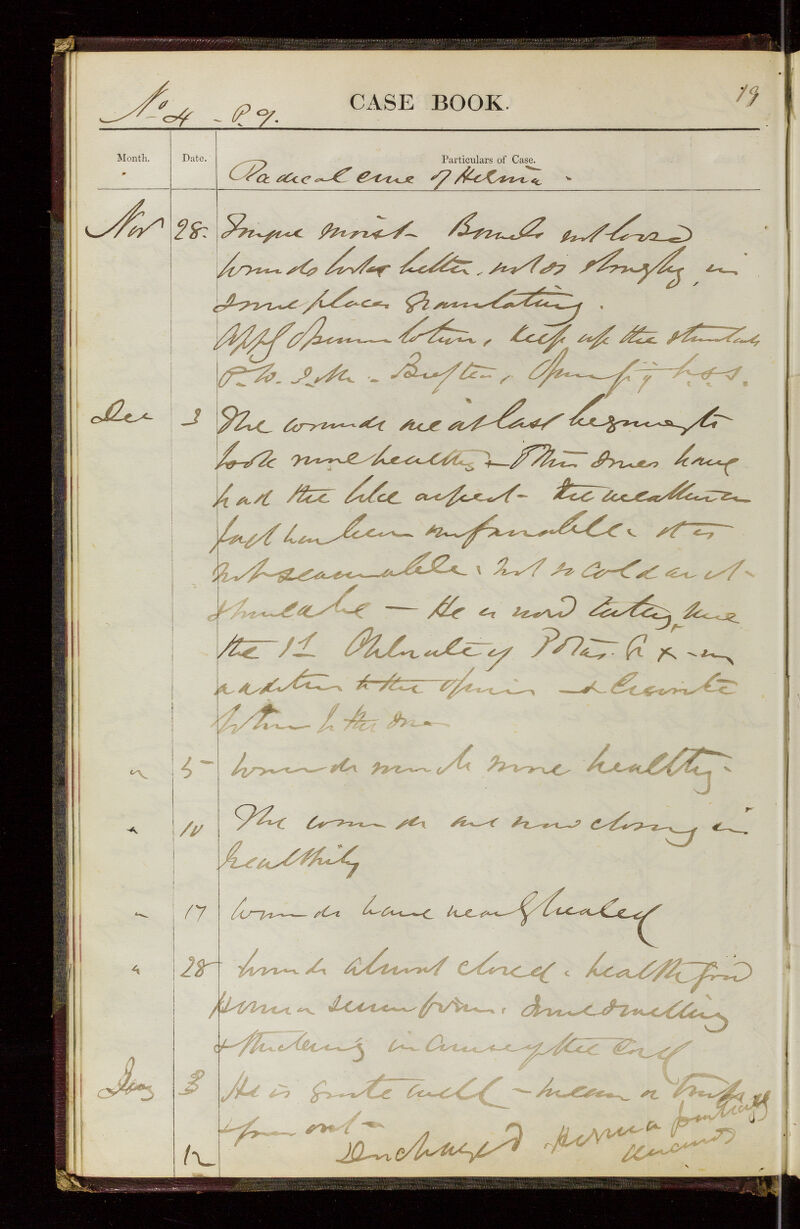 No 4 - P. 9.
CASE BOOK.
19
Month. Date. Particulars of Case.
Radical cure of Hernia -
Nov 28. Tongue moist - Bowels not loose
wounds look better. not so sloughy, in
some places granulating.
Opium lotion, keep up the stimulants
Beef tea,
Dec 3 The wounds are at last beginning to
look more healthy - This ones have
had the like aspect - the weather in
fact has been unfavorable. it is
not seasonable. not so cold as it
should be - He is now taking since
the 1st Chlorate of Potas. Gr x - in
addition to the opium - & Creosote
lotion to the
" 5 wounds much more healthy -
" 10 The wounds are now closing in
healthily
" 17 wounds have nearly healed
" 28 wounds almost closed. health good
Hernia seems Some swelling
& thickening in course of the Cord
Jany 3 He is quite well - wears a truss
& goes out -
12 Discharged - Hernia partially